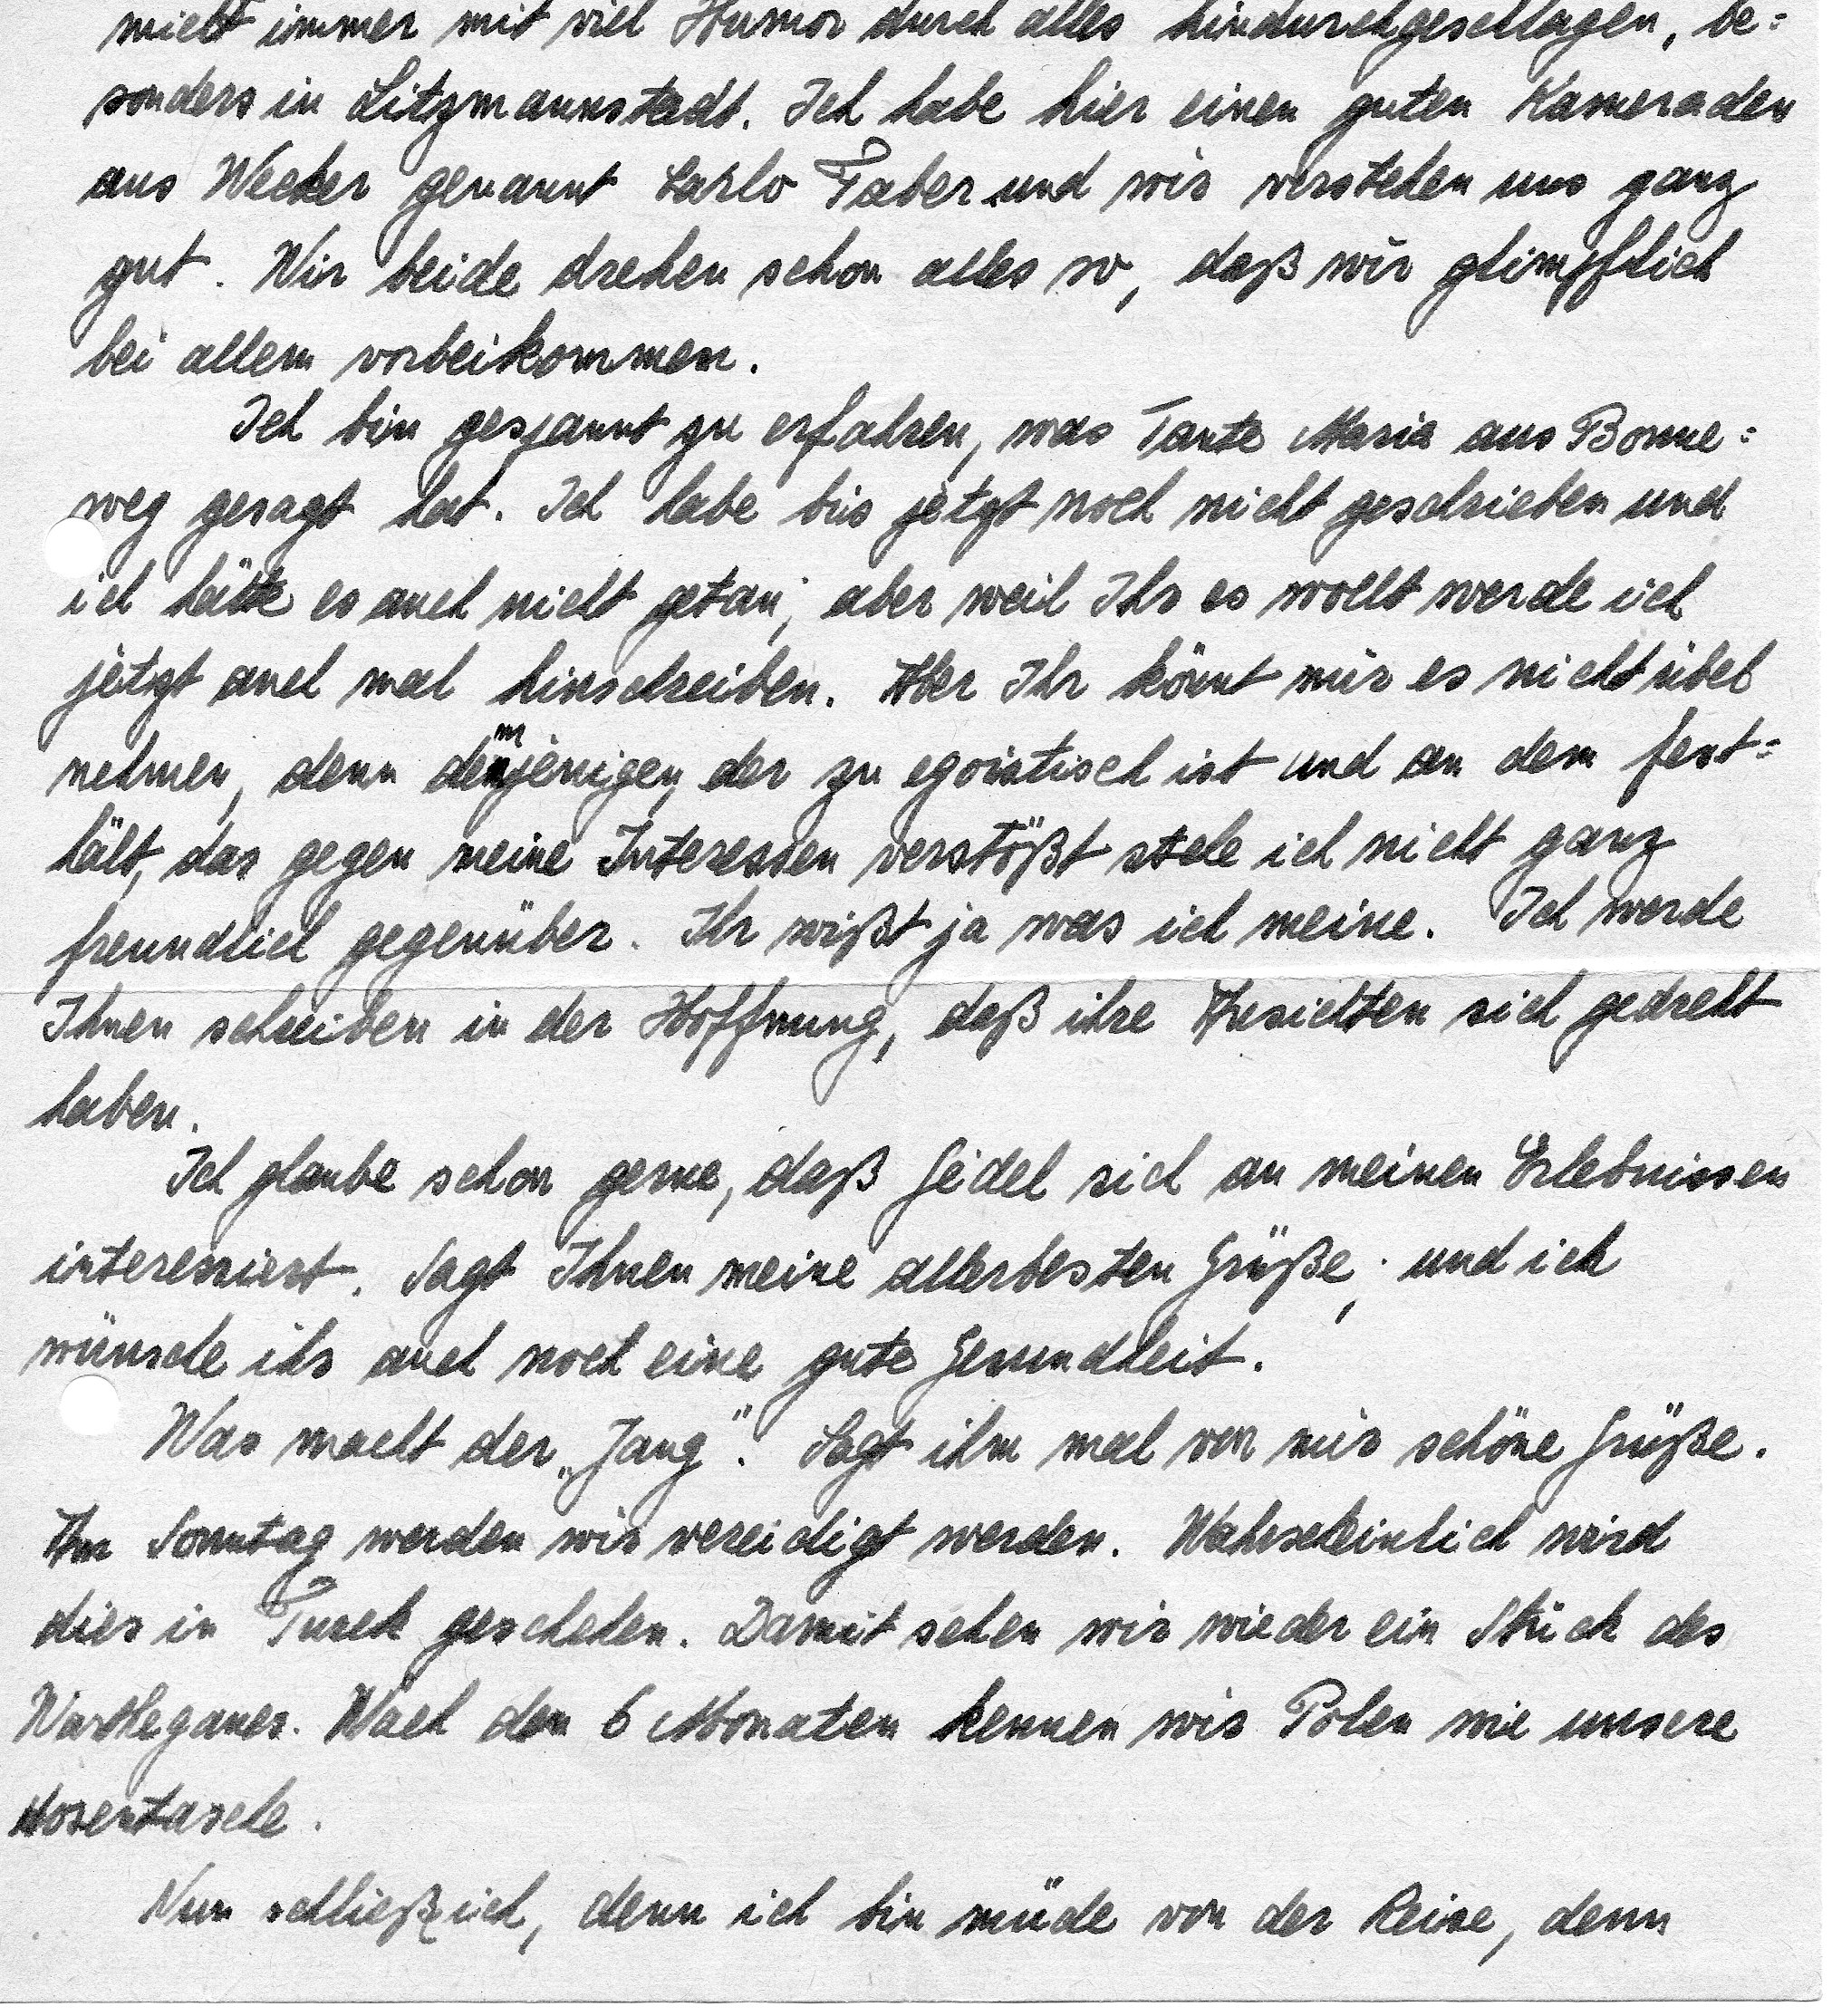 mich immer mit viel Humor durch alles hindurchgeschlagen, be=
sonders in Litzmannstadt. Ich habe hier einen guten Kameraden
aus Wecker genannt Carlo Faber und wir verstehen uns ganz
gut. Wir beide drehen schon alles so, daß wir glimpflich
bei allem vorbeikommen.
Ich bin gespannt zu erfahren, was Tante Maria aus Bonne=
weg gesagt hat. Ich habe bis jetzt noch nicht geschrieben und
ich hätte es auch nicht getan, aber weil Ihr es wollt werde ich
jetzt auch mal hinschreiben. Aber Ihr könnt mir es nicht übel
nehmen, denn demjenigen, der zu egoistisch ist und an dem fest=
hält, das gegen meine Interessen verstößt stehe ich nicht ganz
freundlich gegenüber. Ihr wißt ja was ich meine. Ich werde
Ihnen schreiben in der Hoffnung, daß ihre Ansichten sich gedreht
haben.
Ich glaube schon gerne, daß Geidel sich an meinen Erlebnissen
interessiert. Sagt Ihnen meine allerbesten Grüße, und ich
wünsche ihr auch noch eine gute Gesundheit.
Was macht der „Jang". Sagt ihm mal von mir schöne Grüße.
Am Sonntag werden wir vereidigt werden. Wahrscheinlich wird
dies in Turek geschehen. Damit sehen wir wieder ein Stück des
Warthegaues. Nach den 6 Monaten kennen wir Polen wie unsere
Hosentasche.
Nun schließ ich, denn ich bin müde von der Reise, denn